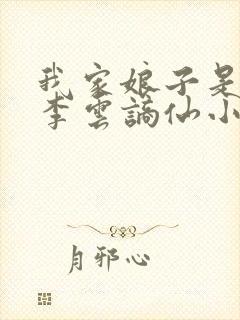 我家娘子是
李雲謫仙小
月邪心